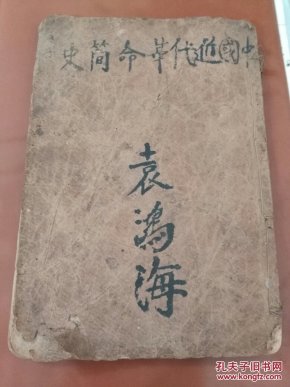 中國近代革命简史
袁鸿海
孔夫子旧书网